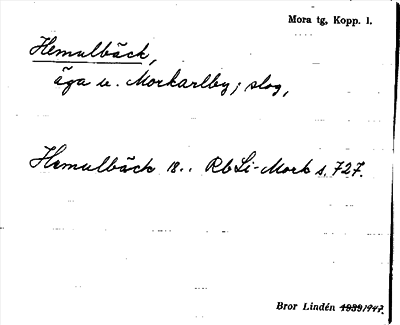 Mora tg, Kopp. l.
Hemulbäck,
äga u. Morkarlby; slog,
Hemulbäck 18.. RbLi-Mork s. 727.
Bror Lindén 1939/947.